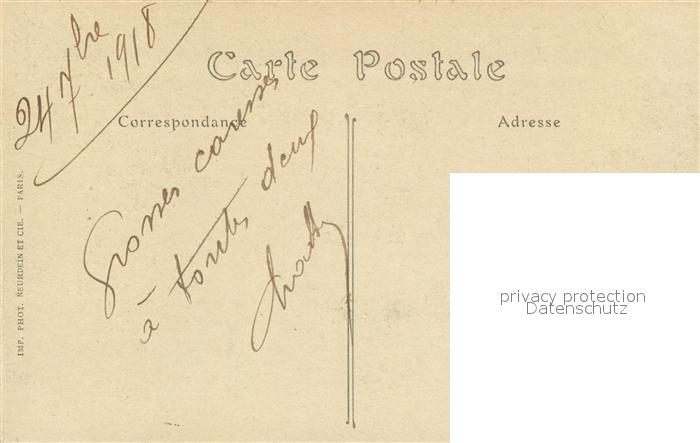 24 7bre
1918
Carte Postale
Correspondance
Adresse
Grosses caresses
à toutes deux
IMP. PHOT. NEURDEIN ET CIE. — PARIS.
privacy protection
Datenschutz